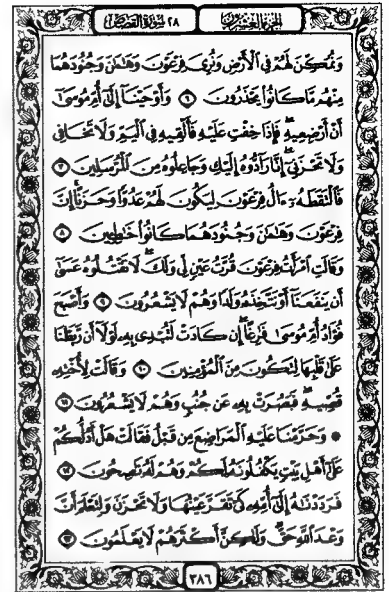 الجزء العشرون ٢٨ سورة القصص
وَنُمَكِّنَ لَهُمْ فِي ٱلْأَرْضِ وَنُرِيَ فِرْعَوْنَ وَهَٰمَٰنَ وَجُنُودَهُمَا
مِنْهُم مَّا كَانُوا۟ يَحْذَرُونَ ٦ وَأَوْحَيْنَآ إِلَىٰٓ أُمِّ مُوسَىٰٓ
أَنْ أَرْضِعِيهِ ۖ فَإِذَا خِفْتِ عَلَيْهِ فَأَلْقِيهِ فِي ٱلْيَمِّ وَلَا تَخَافِي
وَلَا تَحْزَنِيٓ ۖ إِنَّا رَآدُّوهُ إِلَيْكِ وَجَاعِلُوهُ مِنَ ٱلْمُرْسَلِينَ ٧
فَٱلْتَقَطَهُۥٓ ءَالُ فِرْعَوْنَ لِيَكُونَ لَهُمْ عَدُوًّا وَحَزَنًا ۗ إِنَّ
فِرْعَوْنَ وَهَٰمَٰنَ وَجُنُودَهُمَا كَانُوا۟ خَٰطِـِٔينَ ٨
وَقَالَتِ ٱمْرَأَتُ فِرْعَوْنَ قُرَّتُ عَيْنٍ لِّي وَلَكَ ۖ لَا تَقْتُلُوهُ عَسَىٰٓ
أَن يَنفَعَنَآ أَوْ نَتَّخِذَهُۥ وَلَدًا وَهُمْ لَا يَشْعُرُونَ ٩ وَأَصْبَحَ
فُؤَادُ أُمِّ مُوسَىٰ فَٰرِغًا ۖ إِن كَادَتْ لَتُبْدِي بِهِۦ لَوْلَآ أَن رَّبَطْنَا
عَلَىٰ قَلْبِهَا لِتَكُونَ مِنَ ٱلْمُؤْمِنِينَ ١٠ وَقَالَتْ لِأُخْتِهِۦ
قُصِّيهِ ۖ فَبَصُرَتْ بِهِۦ عَن جُنُبٍ وَهُمْ لَا يَشْعُرُونَ ١١
۞ وَحَرَّمْنَا عَلَيْهِ ٱلْمَرَاضِعَ مِن قَبْلُ فَقَالَتْ هَلْ أَدُلُّكُمْ
عَلَىٰٓ أَهْلِ بَيْتٍ يَكْفُلُونَهُۥ لَكُمْ وَهُمْ لَهُۥ نَٰصِحُونَ ١٢
فَرَدَدْنَٰهُ إِلَىٰٓ أُمِّهِۦ كَيْ تَقَرَّ عَيْنُهَا وَلَا تَحْزَنَ وَلِتَعْلَمَ أَنَّ
وَعْدَ ٱللَّهِ حَقٌّ وَلَٰكِنَّ أَكْثَرَهُمْ لَا يَعْلَمُونَ ١٣
٣٨٦